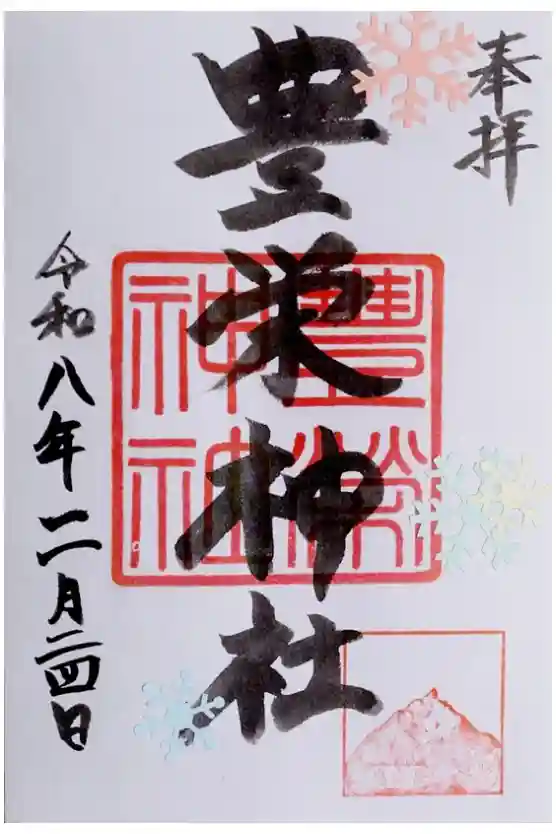 奉拝
豊栄神社
豊榮神社
令和八年二月二四日